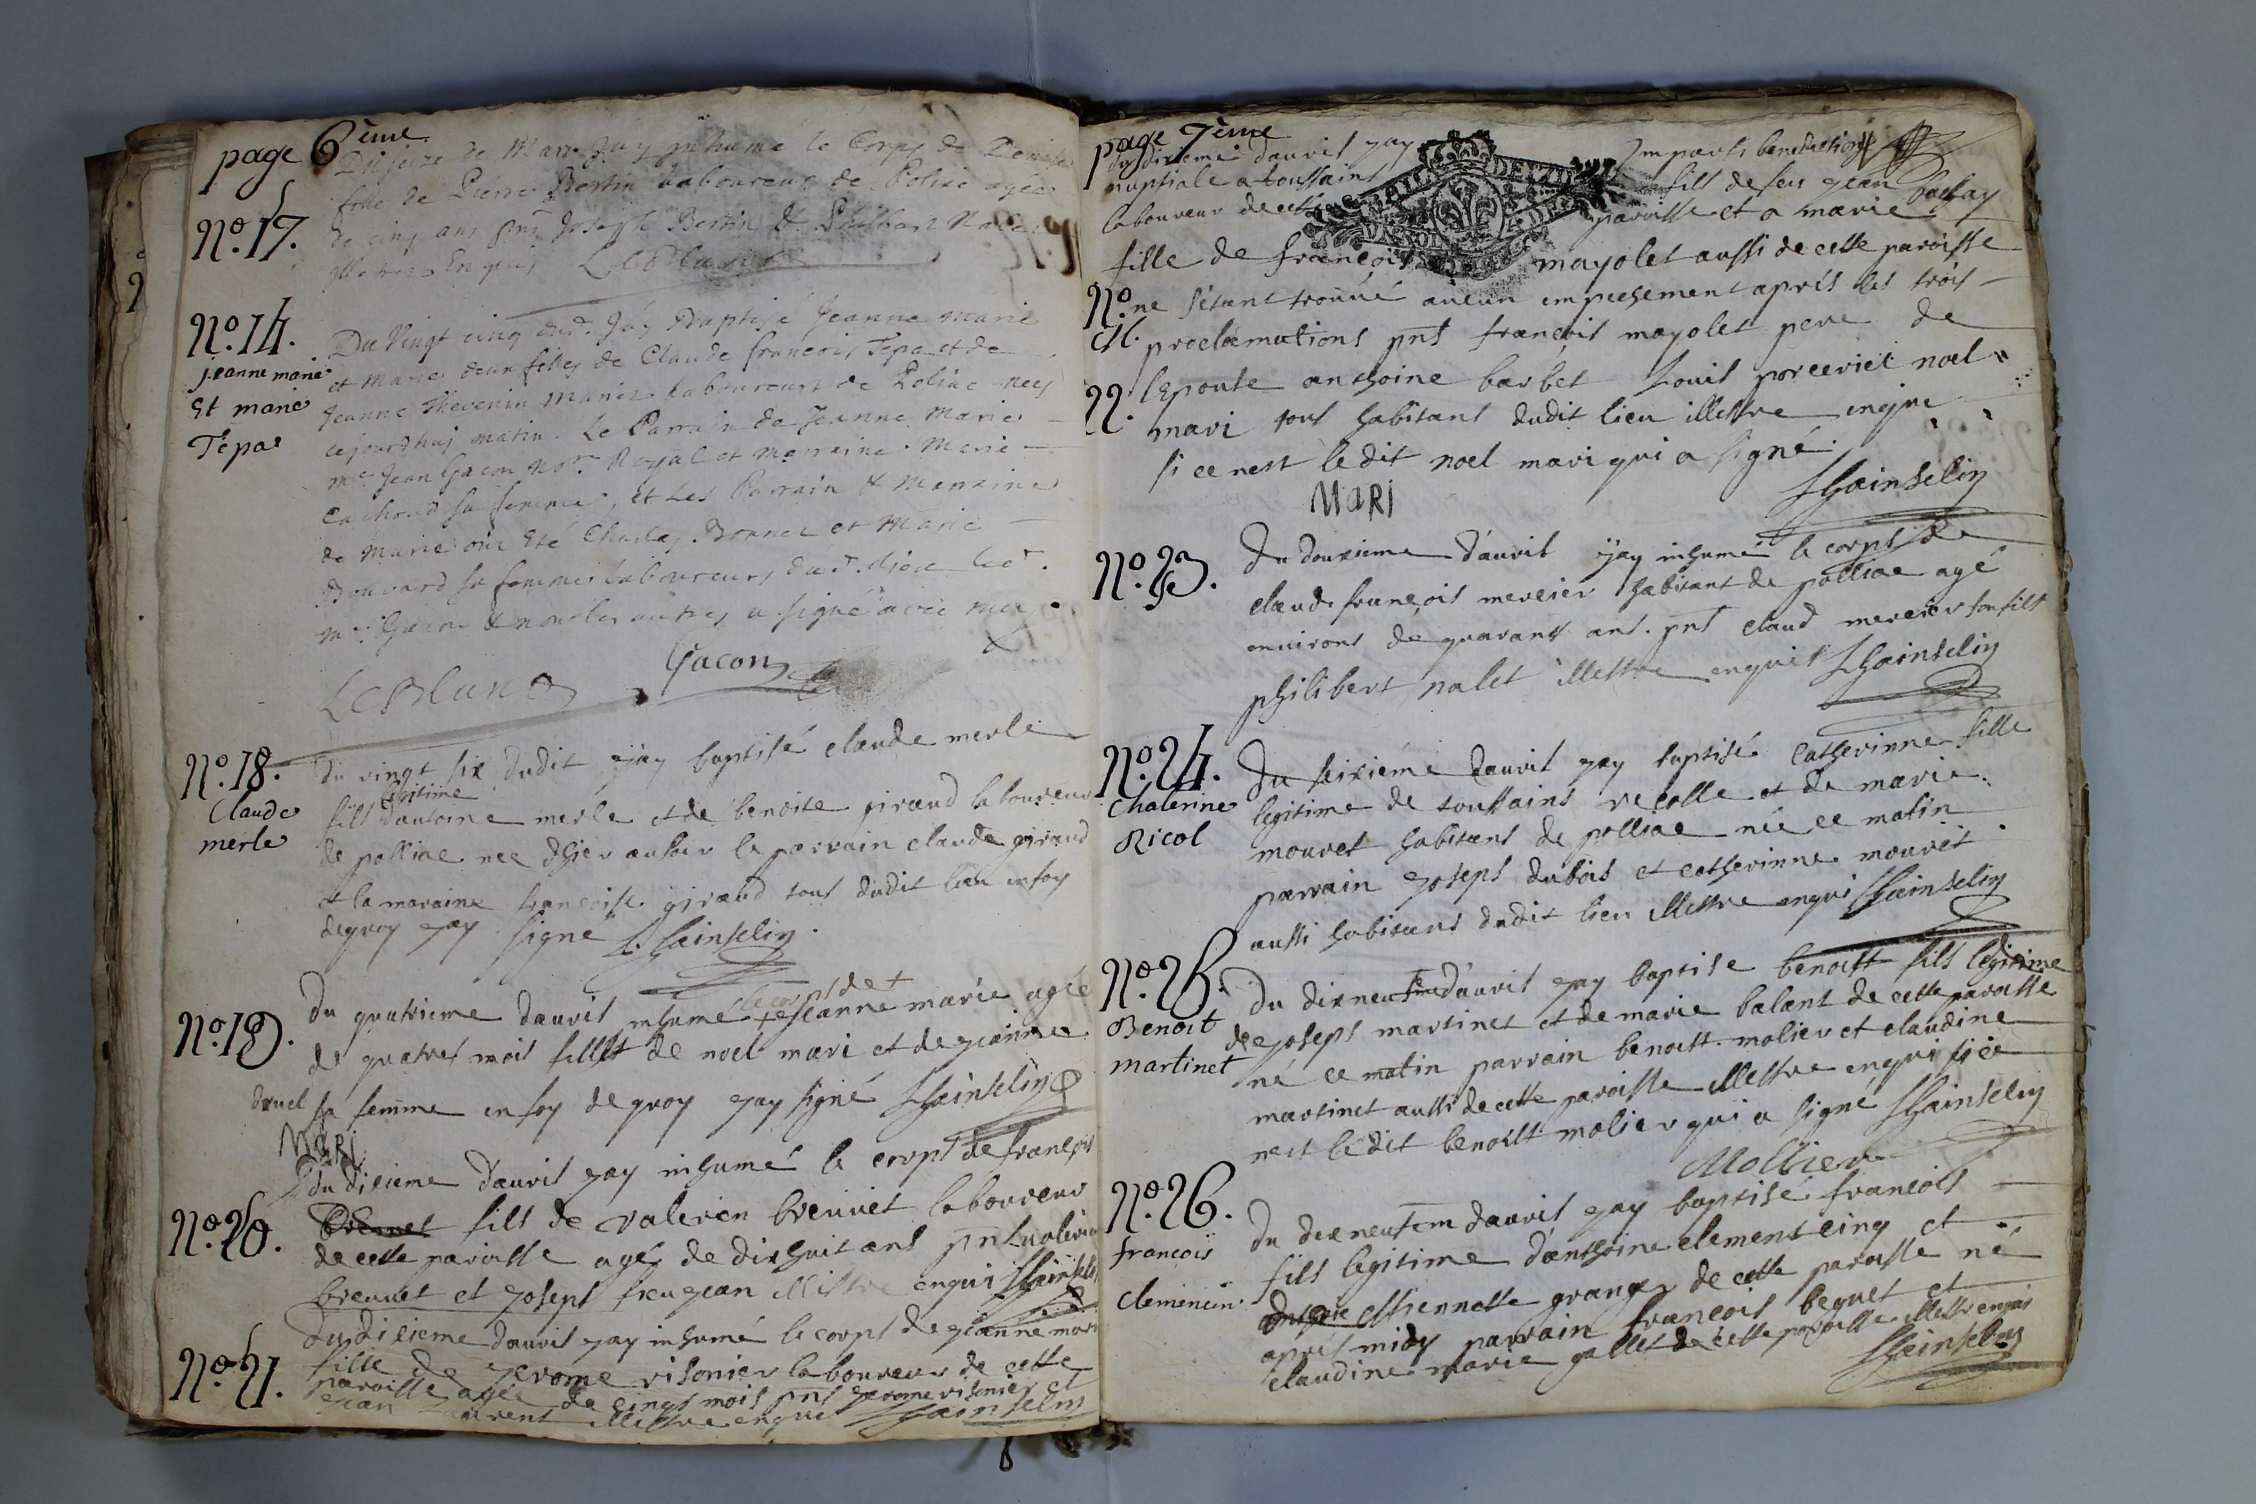 page 6ème
Du seize de Mars Jay inhumé le Corps de Denise
fille de Pierre Bertin Laboureur de Poliac agée
No. 17.
de cinq ans pnt Joseph Bertin & Philibert
illettrez Enquis LeBlanc
No. 14.
Jeanne marie
Et marie
Tépa
Du Vingt cinq dud. Jay Baptisé Jeanne Marie
et Marie deux filles de Claude francois Tépa et de
Jeanne Thevenin mariez Laboureurs de Poliac nées
cejourdhuy matin. Le Parrain de Jeanne Marie
mre Jean Gacon Nore Royal et marraine Marie
Cachoud sa femme, et Les Parrain & Marraine
de Marie ont Eté Charles Bonnet et Marie
Bouvard sa femme Laboureurs dud. lieu led.
mre Gacon & non les autres a signé avec moy
LeBlanc Gacon
No. 18.
Claude
merle
Du vingt six dudit Jay baptisé claude merle
legitime
fils dantoine merle et de benoite giraud laboureur
de polliac nee dhier ausoir le parrain claude giraud
et la maraine francoise giraud tous dudit lieu enfoy
dequoy Jay signé L. hainselin
No. 19.
le corps de +
Du quatrieme dauril inhumé + Jeanne marie agée
de quatres mois fille de noel mari et de jeanne
druel sa femme enfoy de quoy Jay signé Lhainselin
MARI
No. 20.
du dixieme dauril Jay inhumé le corps de françois
Breuuet fils de valerien breuuet laboureur
de cette paroisse agé de dixhuit ans pnt valerien
breuuet et Joseph feugean illettre enqui Lhainselin
No. 21.
Du dixieme dauril Jay inhumé le corps de jeanne marie
fille de Jerome risonier laboureur de cette
paroisse agée de cinqs mois pnt Jerome risonier et
Jean Laurent illettre enquis Lhainselin
page 7ème
du dixieme dauril Jay Imparti benediction
nuptiale a toussaint fils de feu jean
laboureur de cette paroisse et a marie
fille de françois mayolet aussi de cette paroisse
No.
22.
ne sétant trouué aucun empechement aprés les trois
proclamations pnt francois mayolet pere de
lepouse anthoine barbet Louis porceriet noel
mari tous habitant dudit lieu illettre enquis
si ce nest ledit noel mari qui a signé
MARI Lhainselin
No. 23.
Du douxieme dauril Jay inhumé le corps de
claude françois mercier habitant de polliac agé
enuirons de quarante ans. pnt claud mercier son fils
philibert nalet illettre enquis Lhainselin
No. 24.
Chaterine
Ricol
Du seixiéme dauril Jay baptisé Catherinne fille
legitime de toussains recolle et de marie
mouret habitant de polliac née ce matin
parrain Joseph dubois et catherinne mouret
aussi habitans dudit lieu illettre enqui Lhainselin
No. 25.
Benoit
martinet
Du dixneufme dauril Jay baptise benoitt fils legitime
de Joseph martinet et de marie balant de cette paroisse
né ce matin parrain benoitt molier et claudine
martinet aussi de cette paroisse illettre enqui si ce
nest ledit benoitt molier qui a signé Lhainselin
Mollier
No. 26.
francois
clemencin
Du dexneufem dauril Jay baptisé francois
fils legitime danthoine clemenscinq et
estiennette granger de cette paroisse né
aprés midy parrain francois beguet et
claudine marie gallet de cette paroisse illettre enquis
Lhainselin